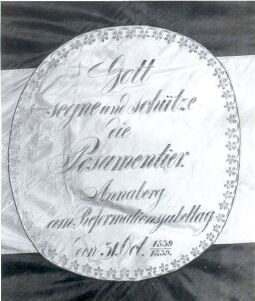 Gott
segne und schütze
die
Posamentier.
Annaberg
am Reformationsjubeltag
den 31. Oct. 1839
1539.